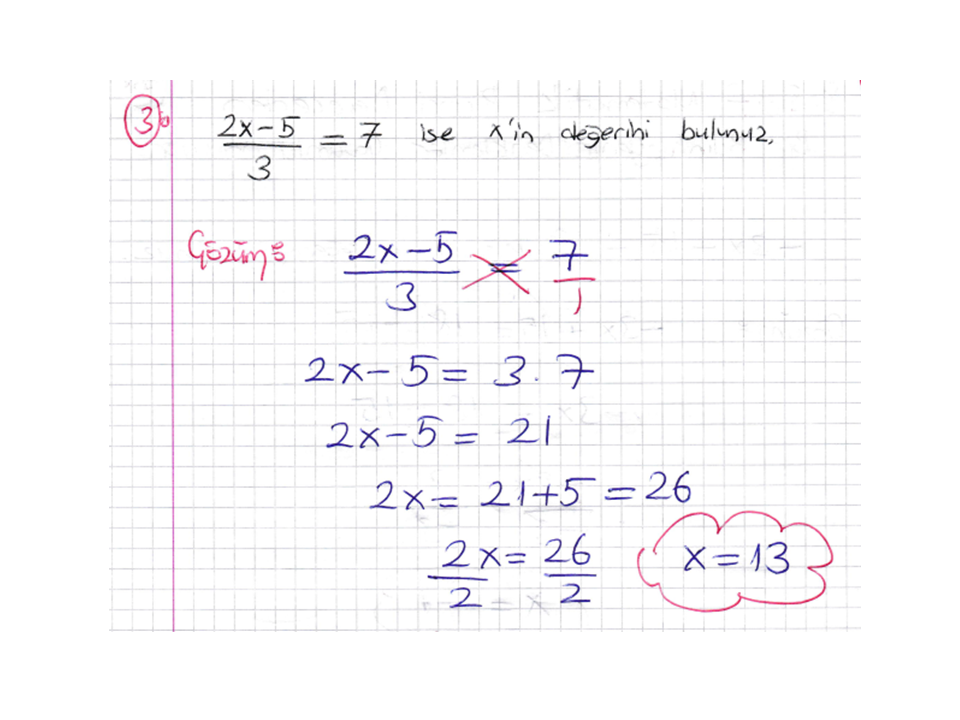 3. (2x-5)/3 = 7 ise x'in değerini bulunuz.
Çözüm: (2x-5)/3 = 7/1
2x-5 = 3.7
2x-5 = 21
2x = 21+5 = 26
2x/2 = 26/2 x = 13